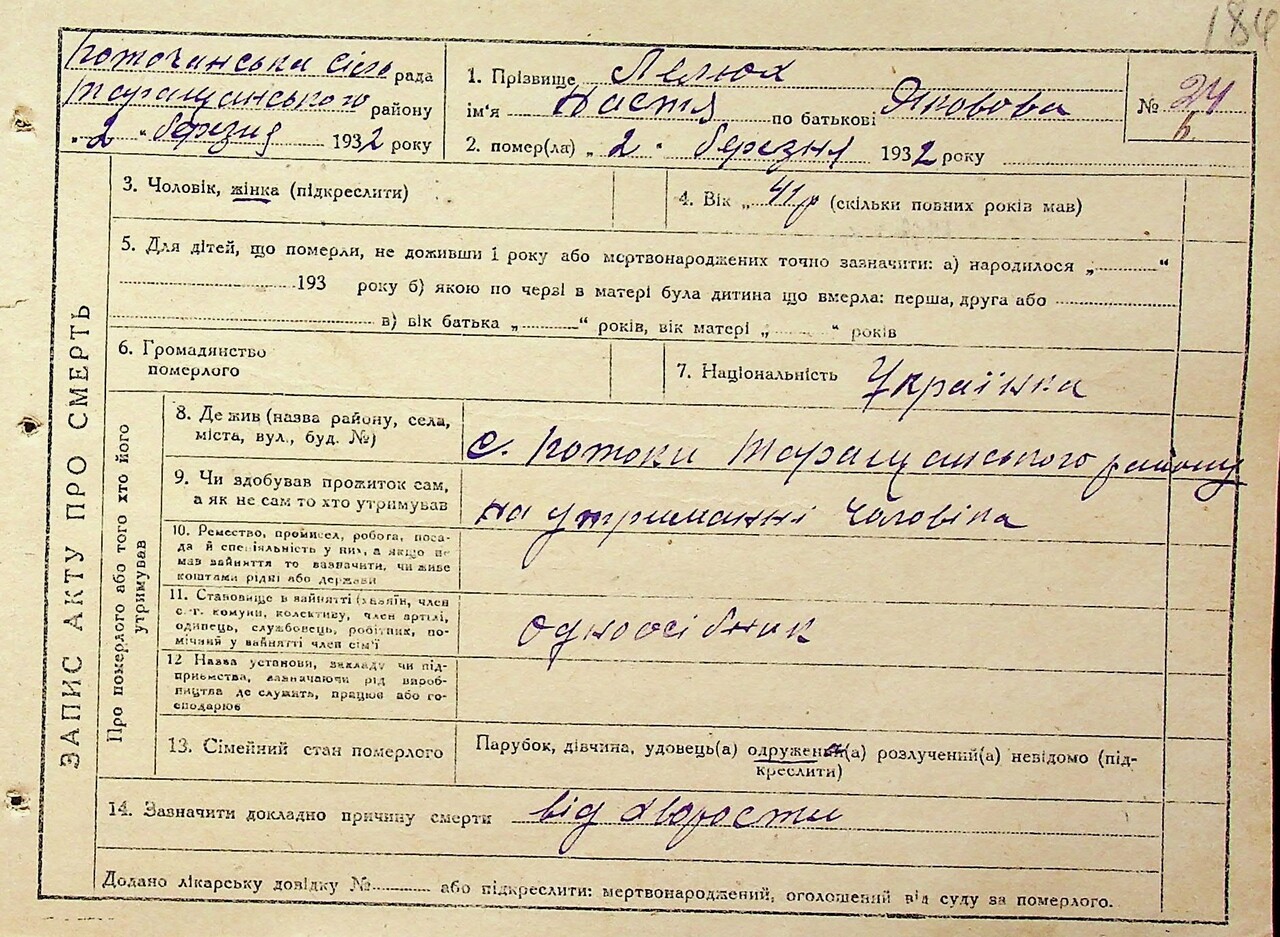 184
Поточанська сіль рада
Таращанського району
„ 2 “ березня 1932 року
1. Прізвище Лелюх
ім'я Настя по батькові Яковова
2. помер(ла) „ 2 “ березня 1932 року
№ 24
ЗАПИС АКТУ ПРО СМЕРТЬ
3. Чоловік, жінка (підкреслити)
4. Вік „ 41 р (скільки повних років мав)
5. Для дітей, що померли, не доживши 1 року або мертвонароджених точно зазначити: а) народилося „ “
193 року б) якою по черзі в матері була дитина що вмерла: перша, друга або
в) вік батька „ “ років, вік матері „ “ років
6. Громадянство
померлого
7. Національність Українка
Про померлого або того хто його
утримував
8. Де жив (назва району, села,
міста, вул., буд. №)
с. Потоки Таращанського району
9. Чи здобував прожиток сам,
а як не сам то хто утримував
на утриманні чоловіка
10. Ремество, промисел, робота, поса-
да й спеціяльність у них, а якщо не
мав зайняття то зазначити, чи живе
коштами рідні або держави
11. Становище в зайнятті (хазяїн, член
с.-г. комуни, колективу, член артілі,
одинець, службовець, робітник, по-
мічний у зайнятті член сім'ї
одноосібник
12 Назва установи, закладу чи під-
приємства, зазначаючи рід вироб-
ництва де служить, працює або го-
сподарює
13. Сімейний стан померлого
Парубок, дівчина, удовець(а) одружений(а) розлучений(а) невідомо (під-
креслити)
14. Зазначити докладно причину смерти від хворости
Додано лікарську довідку № або підкреслити: мертвонароджений, оголошений від суду за померлого.